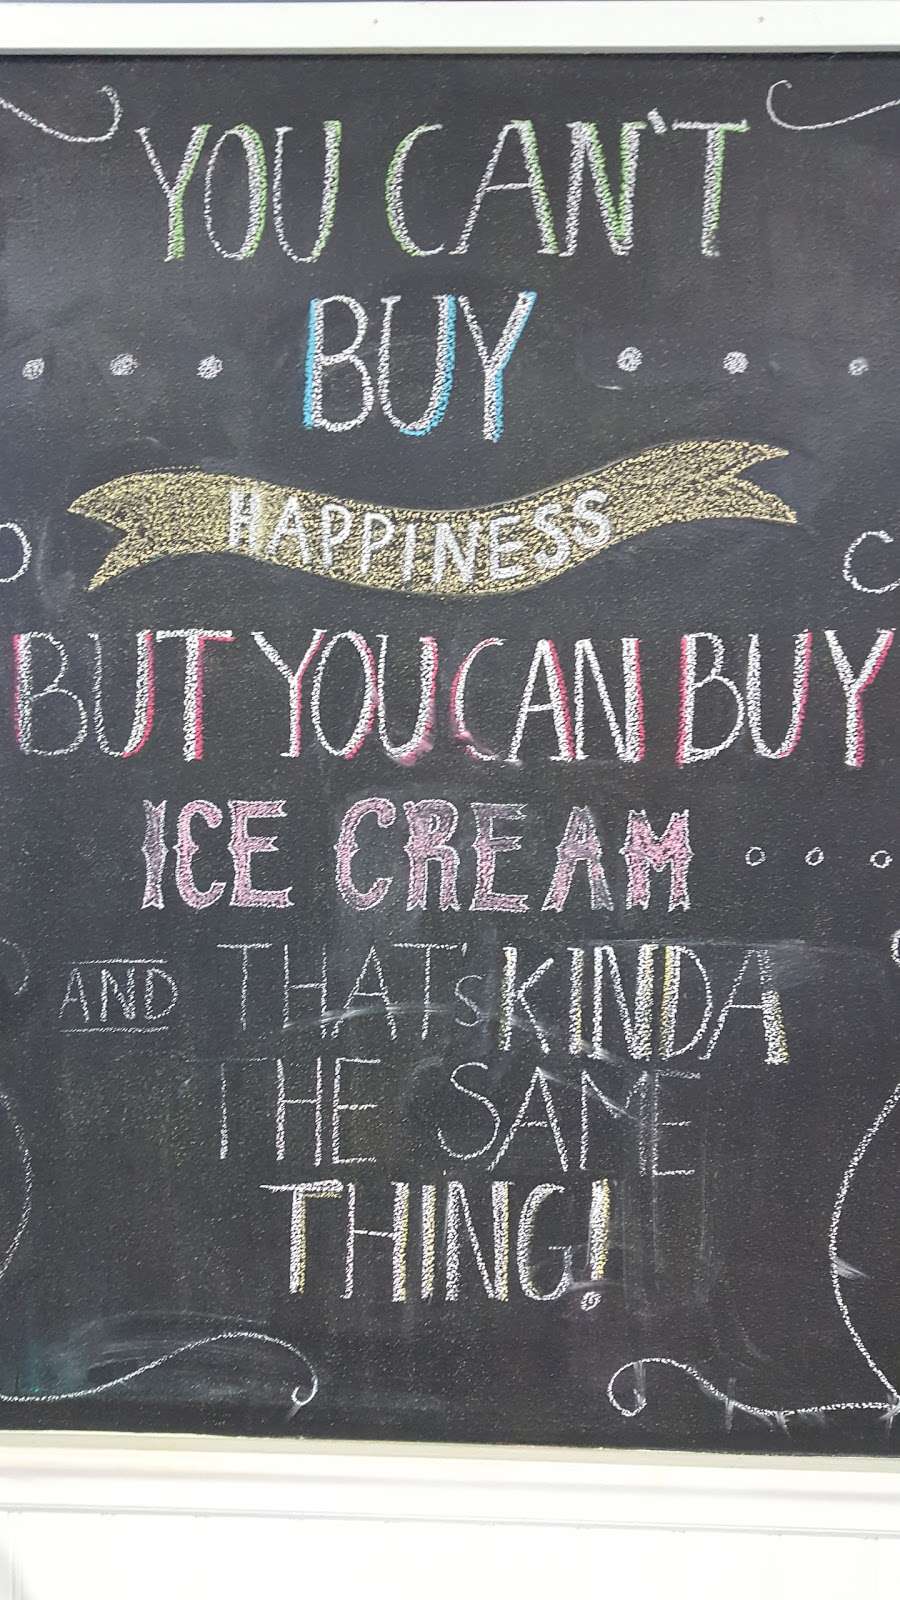 YOU CAN'T
BUY
HAPPINESS
BUT YOU CAN BUY
ICE CREAM
AND THAT'S KINDA
THE SAME
THING!